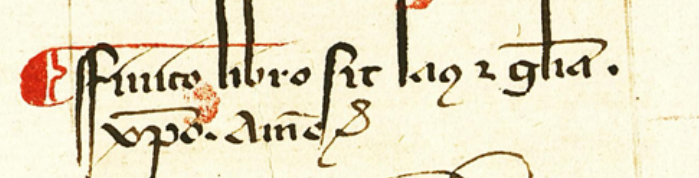 ¶ Ffinito libro sit laus ⁊ gl̄ia.
xp̄o. Amē